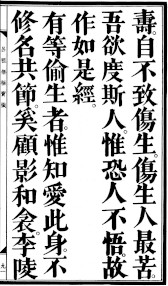 壽。自不致傷生。傷生人最苦。
吾欲度斯人。惟恐人不悟。故
作如是經。
有等偷生者。惟知愛此身。不
修名共節。奚顧影和衾。李陵